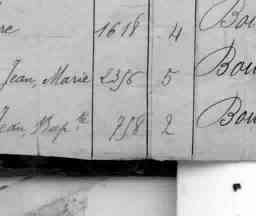 re 1618 4 Bou
Jean, Marie 2356 5 Bou
Jean Bap.te 758 2 Bou